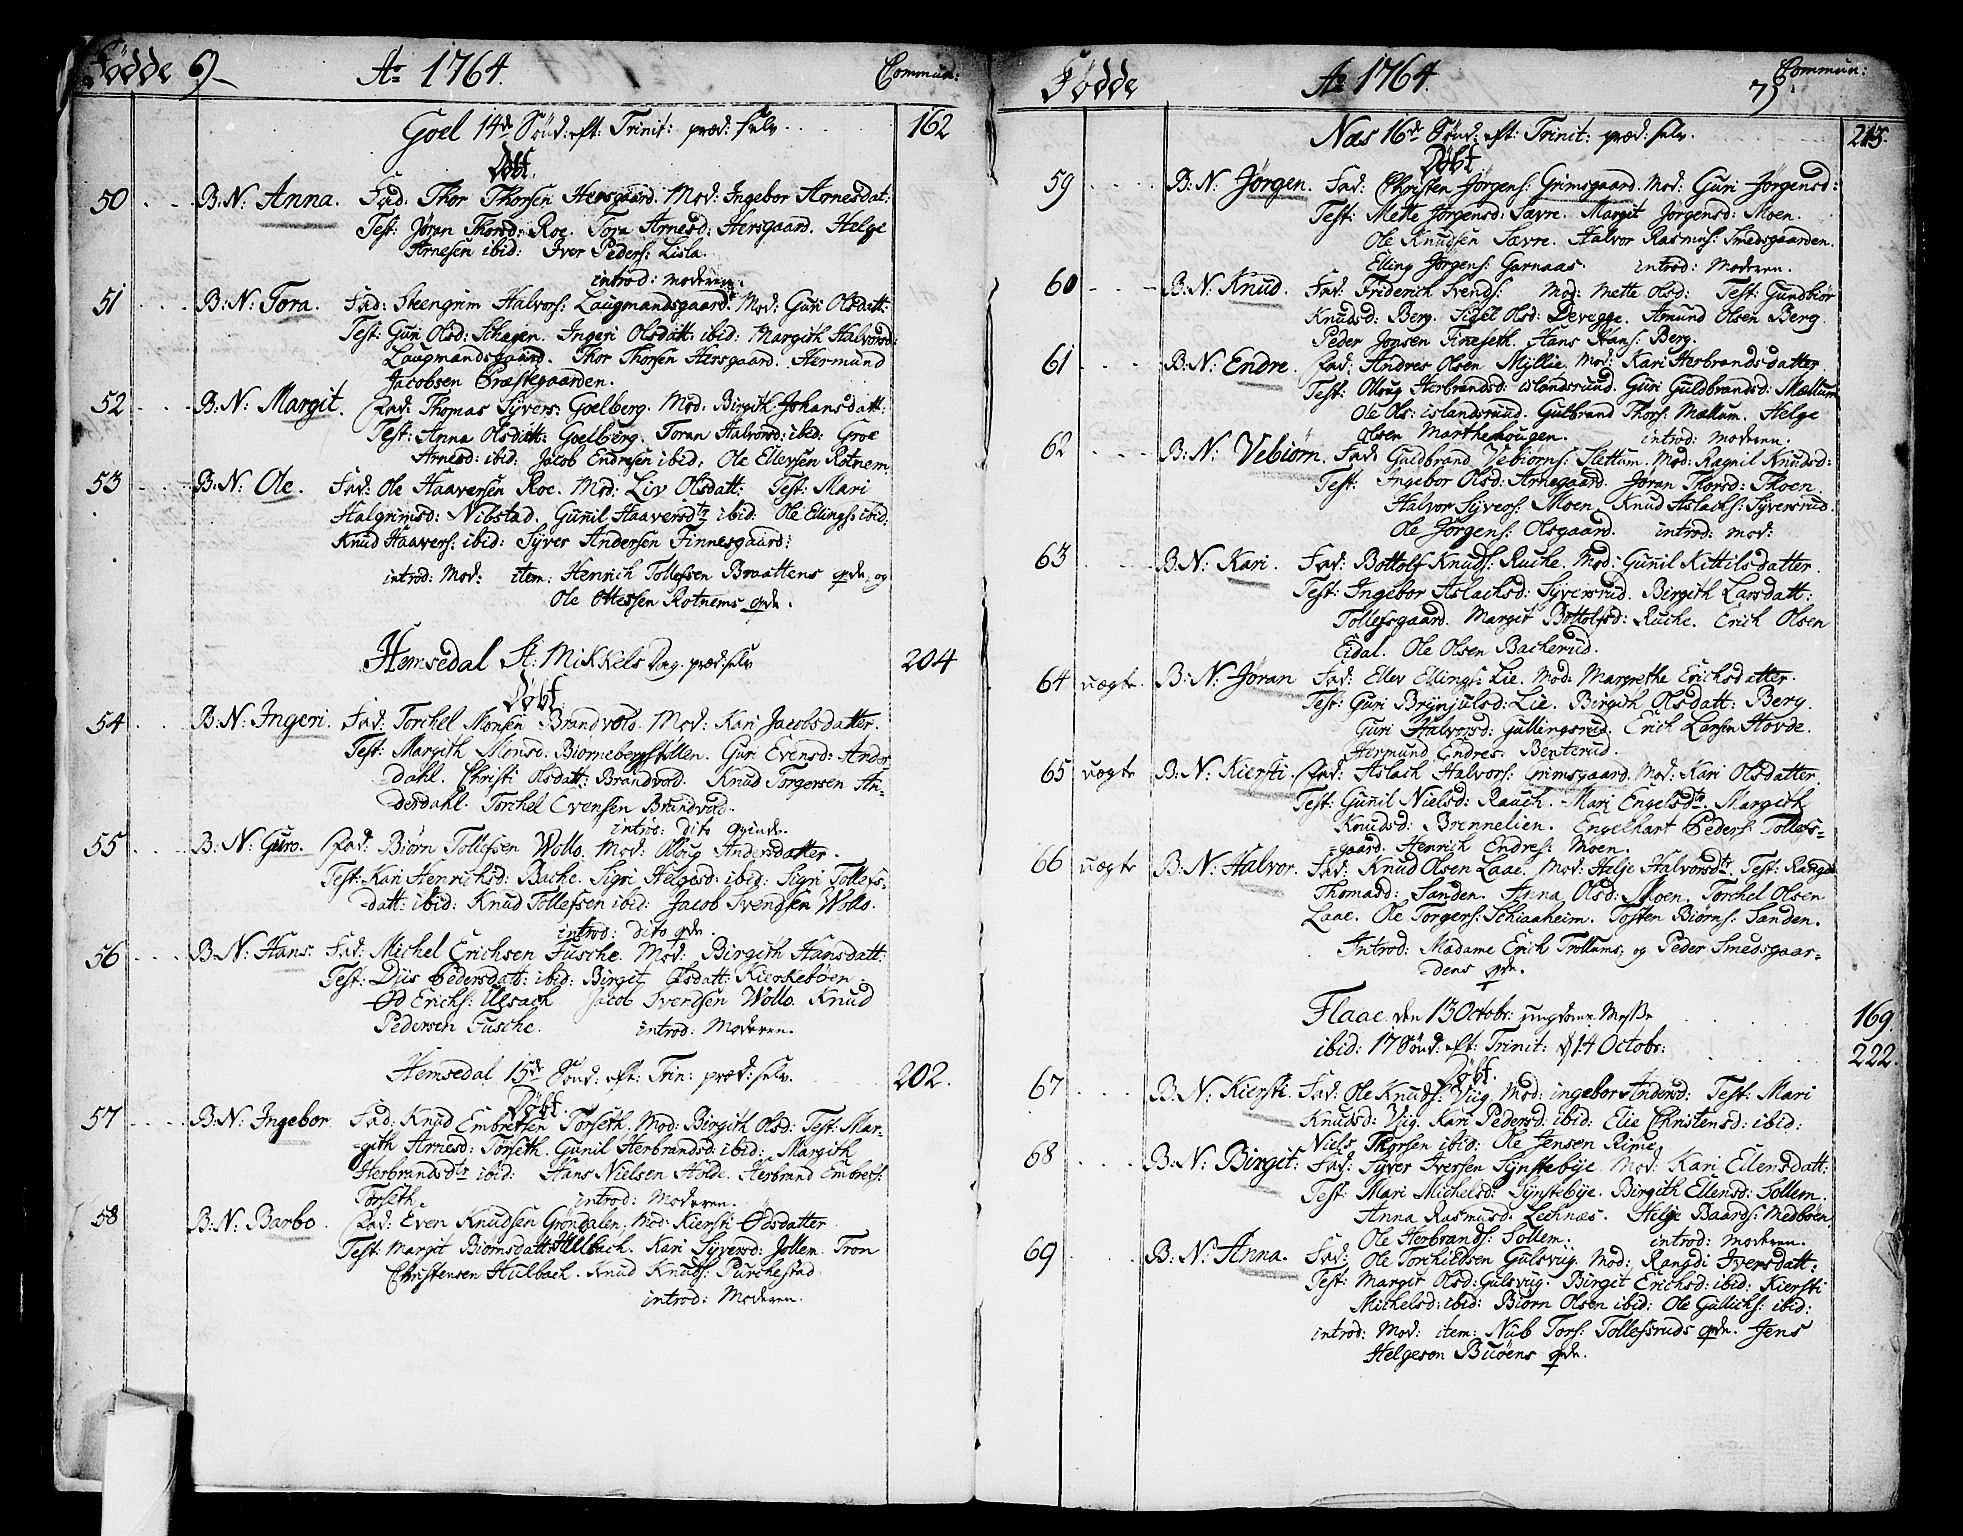 Födde 6
Ao 1764.
Commun:
Goel 14de Sönd: eft: Trinit: præd: selv
162
Döbt.
50 B: N: Anna. Fad: Thor Thorsen Hersgaard. Mod: Ingebor Arnesdat:
Test: Jöran Thorsd: Roe. Tora Arnesd: Hersgaard. Helge
Arnesen ibid: Iver Peders: Lisla.
introd: moderen.
51 B: N: Tora. Fad: Steengrim Halvors: Laugmandsgaard. Mod: Guri Olsdatt:
Test: Guri Olsd: Schagen. Ingeri Olsdatt: ibid: Margith Halvorsd:
Laugmandsgaard. Thor Thorsen Hersgaard. Hermund
Jacobsen Præstegaarden.
52 B: N: Margit. Fad: Thomas Syvers: Goelberg. Mod: Birgith Johansdatt:
Test: Anna Olsdatt: Goelberg. Toran Halvorsd: ibid: Groe
Arnesd: ibid: Jacob Endresen ibid: Ole Ellevsen Rotnem
53 B: N: Ole. Fad: Ole Haaversen Roe. Mod: Liv Olsdatt: Test: Mari
Halgrimsd: Nibstad. Gunil Haaversdtr ibid: Ole Elings: ibid:
Knud Haavers: ibid: Syver Andersen Finnesgaard:
introd: Mod: item: Henrich Tollefsen Braattens qvde. og
Ole Ottesen Rotnems qvde.
Hemsedal St: Mikkels Dag. præd: selv
204
Döbt.
54 B: N: Ingeri. Fad: Torchel Monsen Brandvold. Mod: Kari Jacobsdatter.
Test: Margith Monsd: Biornebergstölen. Guri Evensd: Ander
dahl. Christi Olsdatt: Brandvold. Knud Torgersen An-
derdahl. Torchel Evensen Brandvold.
introd: dito qvinde.
55 B: N: Guro. Fad: Biørn Tollefsen Wollo. Mod: Oloug Andersdatter.
Test: Kari Henrichsd: Bache. Sigri Helgesd: ibid: Sigri Tollefs-
datt: ibid: Knud Tollefsen ibid: Jacob Svendsen Wollo.
introd: dito qvde.
56 B: N: Hans. Fad: Michel Erichsen Fusche. Mod: Birgith Hansdatt:
Test: Dus Pedersdatt: ibid: Birgit Olsdatt: Kirckebøen
Od Erichs: Ulsach Jacob Svendsen Wollo. Knud
Pedersen Fusche. introd: Moderen.
Hemsedal 15de Sönd: eft: Trin: præd: selv.
202.
Döbt.
57 B: N: Ingebor. Fad: Knud Embretsen Torseth. Mod: Birgith Olsd: Test: Mar-
gith Arnesd: Torseth. Gunil Herbrandsd: ibid: Margith
Herbrandsdtr ibid: Hans Nielsen Holde. Herbrand Embrets:
Torseth. introd: Moderen.
58 B: N: Barbo. Fad: Even Knudsen Gröndalen. Mod: Kiersti Odsdatter
Test: Margit Biornsdatt: Hulbach. Kari Syversd: Jollem. Tron
Christensen Hulbach. Knud Knuds: Purchestad.
introd: Moderen.
Födde
Ao 1764.
Commun:
75.
Næs 16de Sönd: eft: Trinit: præd: selv.
Döbt
59 B: N: Jørgen. Fad: Christen Jørgens: Grimsgaard. Mod: Guri Jørgensd:
Test: Mette Jørgensd: Sævre. Margit Jørgensd: Moen.
Ole Knudsen Sævre. Halvor Rasmus: Smedsgaarden.
Elling Jørgens: Garnaas. introd: Moderen.
60 B: N: Knud. Fad: Friderich Svends: Mod: Mette Olsd: Test: Gundbiør
Knudsd: Berg. Sigel Olsd: Devegge. Amund Olsen Berg.
Peder Jonsen Fineseth. Hans Hans: Berg.
61 B: N: Endre. Fad: Andres Olsen Myllie. Mod: Kari Herbrandsdatter
Test: Oloug Herbrandsd: islandsruud. Guri Guldbrandsd: Mællum
Ole Ols: islandsruud. Gulbrand Thors: Mællum. Helge
Olsen Marthehougen. introd: Moderen.
62 B: N: Vebiørn. Fad: Guldbrand Vebiørns: Slettum. Mod: Ragnil Knudsd:
Test: Ingebor Olsd: Arnegaard. Jøran Thorsd: Thoen
Halvor Syvers: Moen. Knud Aslachs: Syversrud.
Ole Jørgens: Olsgaard. introd: mod:
63 B: N: Kari. Fad: Bottolf Knuds: Ruche. Mod: Gunil Kittilsdatter.
Test: Ingebor Aslachsd: Syversrud. Birgith Larsdatt:
Tollefsgaard. Margit Bottolfsd: Ruche. Erich Olsen
Eidal. Ole Olsen Bacherud.
64 uægte B: N: Jøran Fad: Ellev Ellings: Lie. Mod: Margrethe Erichsdatter.
Test: Guri Brynjulsd: Lie. Birgith Olsdatt: Berg.
Guri Halvorsd: Gullingsrud. Erich Larsen Hovde.
Hermund Endres: Benterud.
65 uægte B: N: Kiersti. Fad: Aslach Halvors: Grimsgaard. Mod: Kari Olsdatter
Test: Gunil Nielsd: Rauch. Mari Engelsdtr. Margith
Knudsd: Brennelien. Engelhart Peders: Tollefs-
gaard. Henrich Endres: Moen.
66 uægte B: N: Halvor. Fad: Knud Olsen Laae. Mod: Helje Halvorsdtr. Test: Rangdi
Thomasd: Sanden. Anna Olsd: Moen. Torchel Olsen
Laae. Ole Torgers: Schiaaheim. Tosten Biørns: Sanden.
Introd: Madame Erich Trollums, og Peder Smedsgaar-
dens qvde.
Flaae den 13 Octobr: ungdoms Messe
169.
ibid: 17 Sönd: eft: Trinit: d 14 Octobr:
222.
Döbt.
67 B: N: Kiersti. Fad: Ole Knuds: Viig. Mod: ingebor Andersd: Test: Mari
Knudsd: Viig. Kari Pedersd: ibid: Elie Christensd: ibid:
Niels Thorsen ibid: Ole Jensen Rime.
68 B: N: Birgit: Fad: Syver Iversen Synstebye. Mod: Kari Ellensdatt:
Test: Mari Michelsd: Synstebye. Birgith Ellensd: Sollem.
Anna Rasmusd: Lechnæs. Helje Baards: Medbøen
Ole Herbrands: Sollem: introd: moderen.
69 B: N: Anna. Fad: Ole Torchildsen Gulsvug. Mod: Rangdi Iversdatt:
Test: Margit Olsd: Gulsvug. Birgit Erichsd: ibid: Kiersti
Michelsd: ibid: Biørn Olsen ibid: Ole Gulichs: ibid:
introd: Mod: item: Nub Tors: Tollefsruds qvde. Jens
Helgesen Buøens qvde.